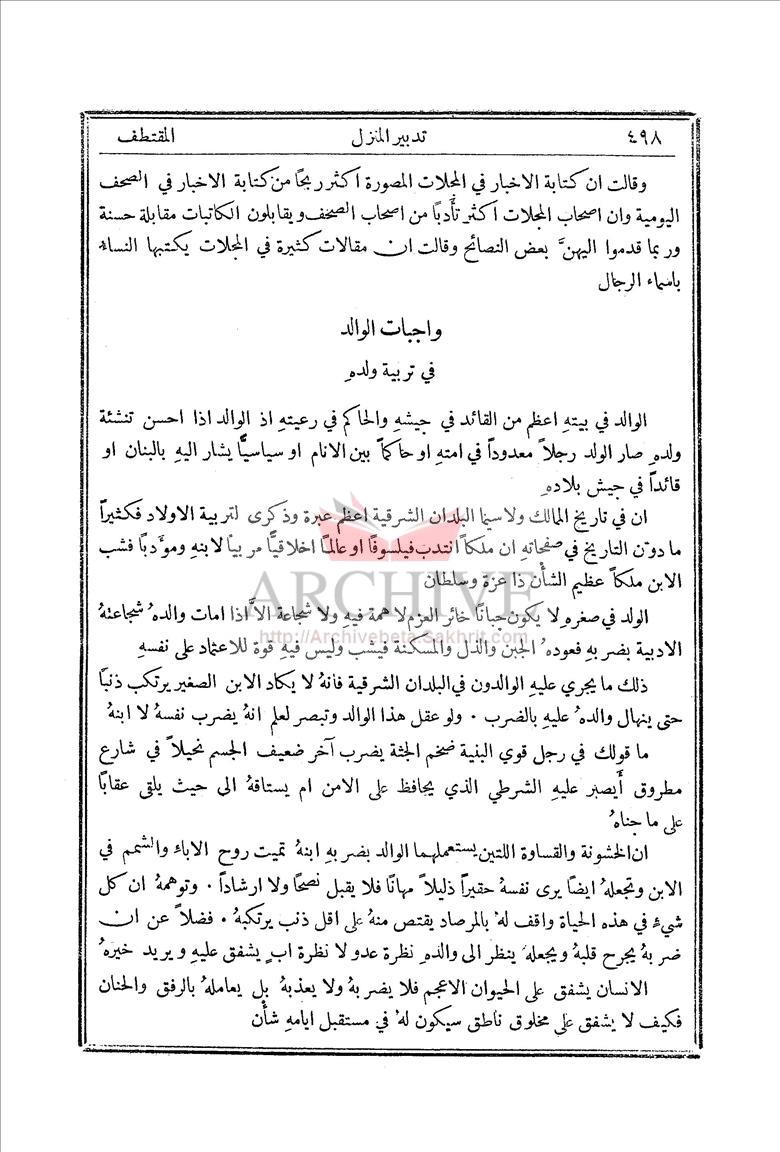 ٤٩٨ تدبير المنزل المقتطف
وقالت ان كتابة الاخبار في المجلات المصورة اكثر ربحًا من كتابة الاخبار في الصحف
اليومية وان اصحاب المجلات اكثر تأدبًا من اصحاب الصحف ويقابلون الكاتبات مقابلة حسنة
وربما قدموا اليهنَّ بعض النصائح وقالت ان مقالات كثيرة في المجلات يكتبها النساء
باسماء الرجال
واجبات الوالد
في تربية ولدهِ
الوالد في بيتهِ اعظم من القائد في جيشهِ والحاكم في رعيتهِ اذ الوالد اذا احسن تنشئة
ولدهِ صار الولد رجلاً معدوداً في امتهِ او حاكماً بين الانام او سياسيًّا يشار اليهِ بالبنان او
قائداً في جيش بلادهِ
ان في تاريخ الممالك ولاسيما البلدان الشرقية اعظم عبرة وذكرى لتربية الاولاد فكثيراً
ما دوّن التاريخ في صفحاتهِ ان ملكاً انتدب فيلسوفًا او عالمًا اخلاقيًّا مربيًا لابنهِ ومؤدبًا فشب
الابن ملكاً عظيم الشأن ذا عزة وسلطان
ARCHIVE
http://Archivebeta.Sakhrit.com
الولد في صغرهِ لا يكون جبانًا خائر العزم لا همة فيهِ ولا شجاعة الاَّ اذا امات والدهُ شجاعتهُ
الادبية بضربهِ فعودهُ الجبن والذل والمسكنة فيشب وليس فيهِ قوة للاعتماد على نفسهِ
ذلك ما يجري عليهِ الوالدون في البلدان الشرقية فانهُ لا يكاد الابن الصغير يرتكب ذنبًا
حتى ينهال والدهُ عليهِ بالضرب ٠ ولو عقل هذا الوالد وتبصر لعلم انهُ يضرب نفسهُ لا ابنهُ
ما قولك في رجل قوي البنية ضخم الجثة يضرب آخر ضعيف الجسم نحيلاً في شارع
مطروق أَيصبر عليهِ الشرطي الذي يحافظ على الامن ام يستاقهُ الى حيث يلقى عقابًا
على ما جناهُ
ان الخشونة والقساوة اللتين يستعملهما الوالد بضربهِ ابنهُ تميت روح الاباء والشمم في
الابن وتجعلهُ ايضاً يرى نفسهُ حقيراً ذليلاً مهانًا فلا يقبل نصحًا ولا ارشاداً ٠ وتوهمهُ ان كل
شيءٍ في هذه الحياة واقف لهُ بالمرصاد يقتص منهُ على اقل ذنب يرتكبهُ ٠ فضلاً عن ان
ضربهُ يجرح قلبهُ ويجعلهُ ينظر الى والدهِ نظرة عدو لا نظرة ابٍ يشفق عليهِ ويريد خيرهُ
الانسان يشفق على الحيوان الاعجم فلا يضربهُ ولا يعذبهُ بل يعاملهُ بالرفق والحنان
فكيف لا يشفق على مخلوق ناطق سيكون لهُ في مستقبل ايامهِ شأن